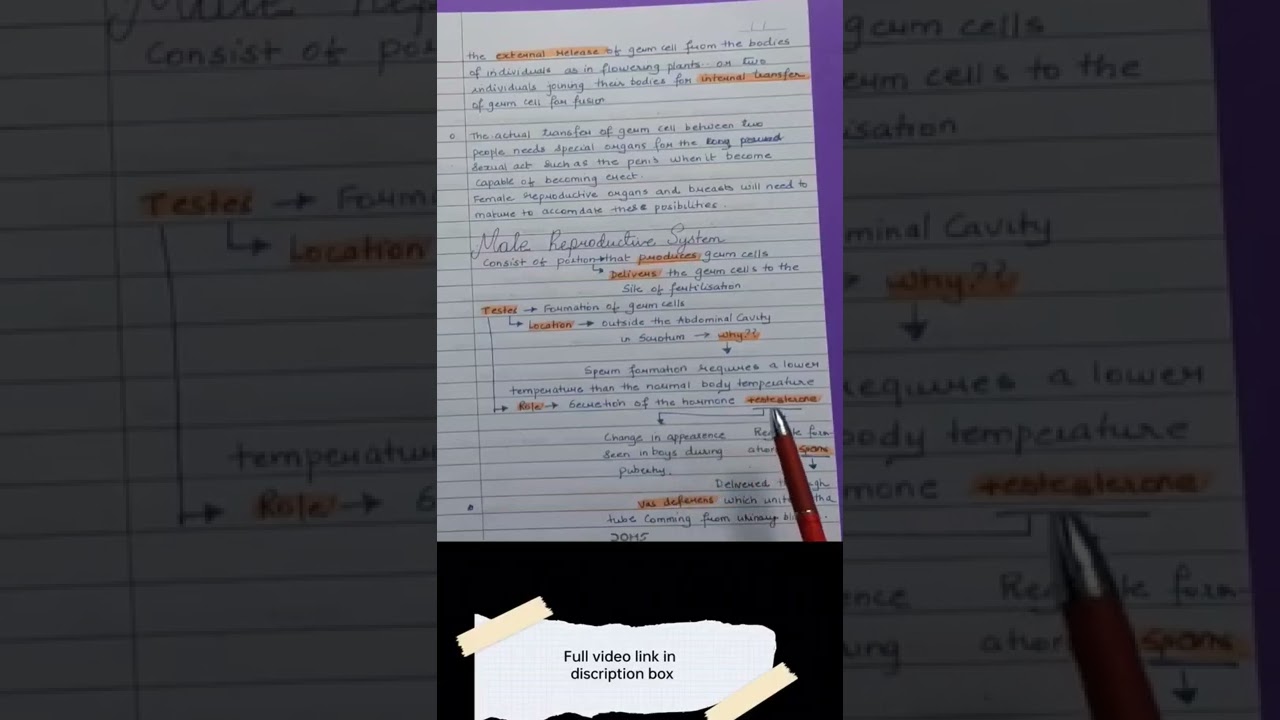 the external release of germ cell from the bodies
of individuals as in flowering plants.. or two
individuals joining their bodies for internal transfer
of germ cell for fusion
The actual transfer of germ cell between two
people needs special organs for the
sexual act such as the penis when it become
capable of becoming erect.
Female reproductive organs and breasts will need to
mature to accomdate these posibilities.
Male Reproductive System
Consist of portion → that produces germ cells
↳ Delivers the germ cells to the
Site of fertilisation
Testes → Formation of germ cells
↳ Location → outside the Abdominal Cavity
in Scrotum → why??
Sperm formation requires a lower
temperature than the normal body temperature
Role → Secretion of the hormone testesterone
Change in appearence
seen in boys during
puberty.
Delivered
vas deferens which
tube Comming from urinary
DOMS
Full video link in
discription box